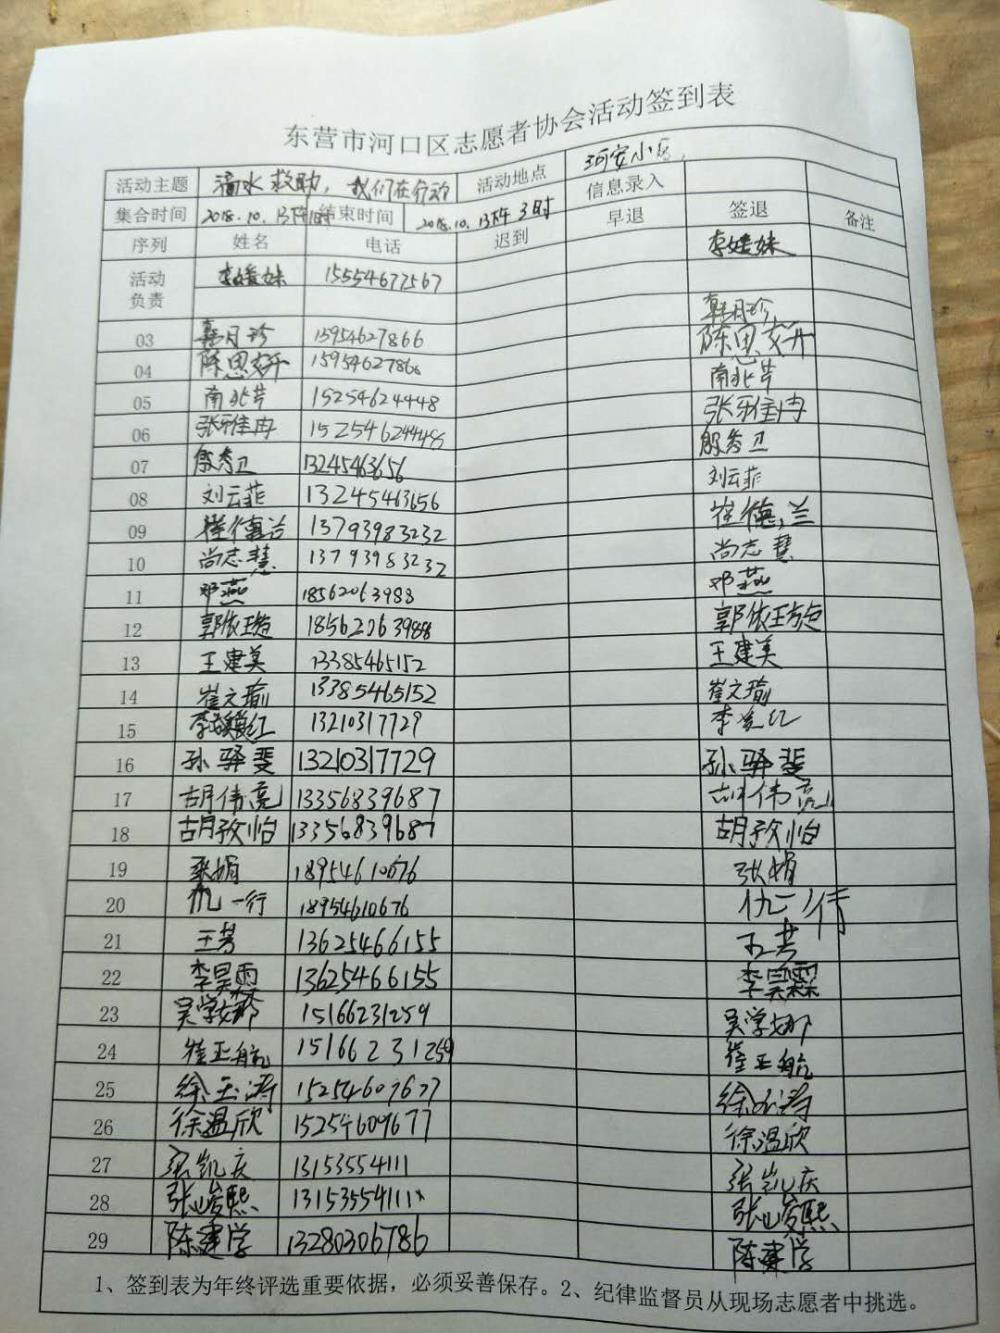 东营市河口区志愿者协会活动签到表
活动主题 滴水救助，我们在行动 活动地点 河安小区
集合时间 2018.10.13下午1时 结束时间 2018.10.13下午3时 信息录入
序列 姓名 电话 迟到 早退 签退 备注
活动负责 李媛妹 15554677567 李媛妹
03 韩月珍 15954627866 韩月珍
04 陈思妍 15954627866 陈思妍
05 南北芹 15254624448 南北芹
06 张雅冉 15254624448 张雅冉
07 殷秀卫 13245463656 殷秀卫
08 刘云菲 13245463656 刘云菲
09 崔德兰 13793983232 崔德兰
10 尚志慧 13793983232 尚志慧
11 邓燕 18562063988 邓燕
12 郭依璇 18562063988 郭依璇
13 王建美 13385465152 王建美
14 崔文瑜 13385465152 崔文瑜
15 13210317729
16 孙驿斐 13210317729 孙驿斐
17 胡伟亮 13356839687 胡伟亮
18 胡孜怡 13356839687 胡孜怡
19 张娟 18954610676 张娟
20 仇一行 18954610676 仇一行
21 王芳 13625466155 王芳
22 李昊霖 13625466155 李昊霖
23 吴学娜 15166231259 吴学娜
24 崔正航 15166231259 崔正航
25 徐玉涛 15254609677 徐玉涛
26 徐温欣 15254609677 徐温欣
27 张凯庆 13153554111 张凯庆
28 张峻熙 13153554111 张峻熙
29 陈建学 13280306786 陈建学
1、签到表为年终评选重要依据，必须妥善保存。2、纪律监督员从现场志愿者中挑选。